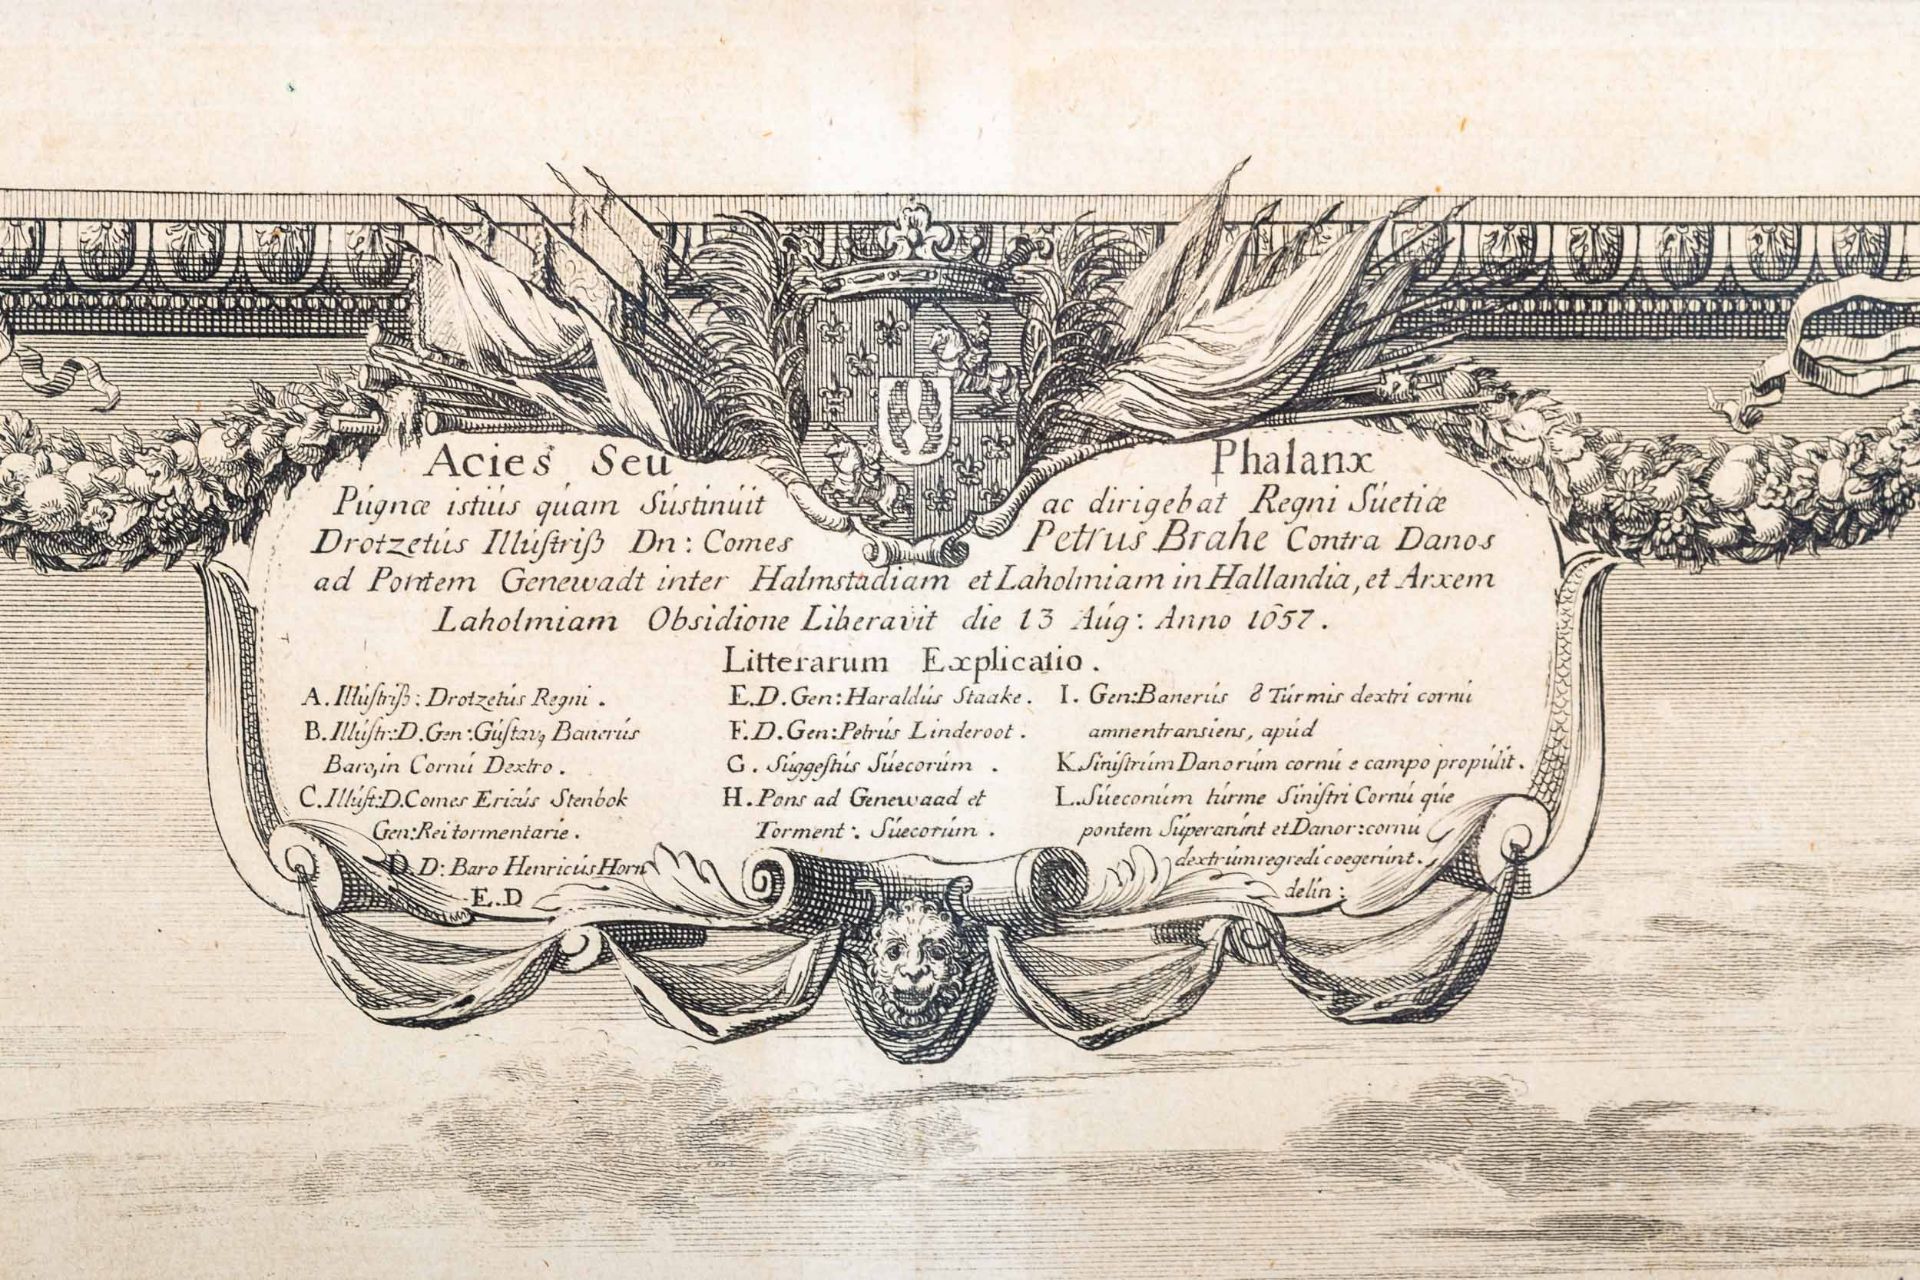 Acies Seu Phalanx
Púgnæ istiús qúam Sústinúit ac dirigebat Regni Súetiæ
Drotzetús Illústriß Dn: Comes Petrus Brahe Contra Danos
ad Pontem Genewadt inter Halmstadiam et Laholmiam in Hallandia, et Arxem
Laholmiam Obsidione Liberavit die 13 Aúg: Anno 1657.
Litterarum Explicatio.
A. Illústriß: Drotzetús Regni.
B. Illústr: D. Gen: Gústavq Banerús
Baro, in Cornú Dextro.
C. Illúst: D. Comes Ericús Stenbok
Gen: Rei tormentarie.
D. D: Baro Henricús Horn
E. D. Gen: Haraldús Staake.
F. D. Gen: Petrús Linderoot.
G. Súggestús Súecorúm.
H. Pons ad Genewaad et
Torment: Súecorúm.
I. Gen: Banerús 8 Túrmis dextri cornú
amnentransiens, apúd
K. Sinistrúm Danorúm cornú e campo propúlit.
L. Súeconúm túrme Sinistri Cornú qúe
pontem Súperarúnt et Danor: cornú
dextrúm regredi coegerúnt.
E. D delin: